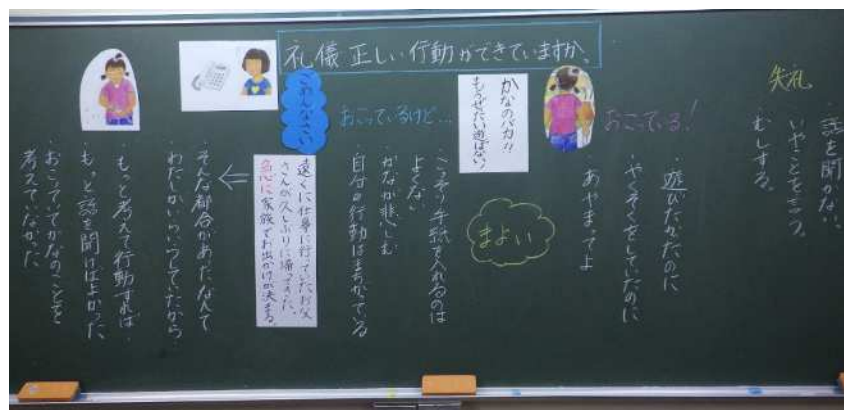 礼儀正しい行動ができていますか。
失礼
・話を聞かない。
いやなことを言う。
むしする。
おこっている!
・遊びたかったのに
・やくそくをしていたのに
・あやまってよ
かなのバカ!!
もうぜったい遊ばない!
まよい
おこっているけど…
・こっそり手紙を入れるのは
よくない
・かなが悲しむ
・自分の行動はまちがっている
ごめんなさい
遠くに仕事に行っていたお父
さんが久しぶりに帰ってきた。
急に家族でお出かけが決まる。
・そんな都合があったなんて
・わたしがいらいらしてたから
・もっと考えて行動すれば
・もっと話を聞けばよかった
・おこっていてかなのことを
考えてなかった